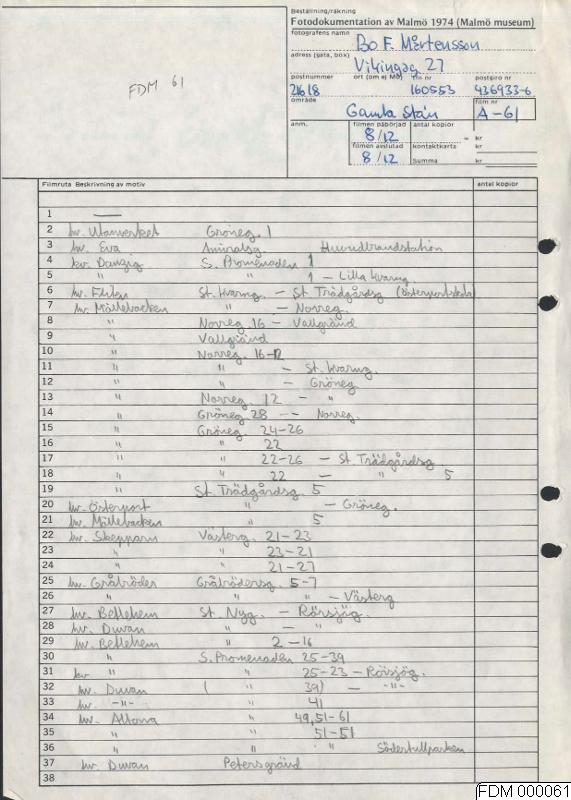 Beställning/räkning
Fotodokumentation av Malmö 1974 (Malmö museum)
fotografens namn
Bo F. Mårtensson
adress (gata, box)
Vikingag 27
postnummer ort (om ej Mö) postgiro nr
21618 160553 436933-6
område film nr
Gamla Stan A-61
anm. filmen påbörjad antal kopior
8/12 = kr
filmen avslutad kontaktkarta kr
8/12 Summa kr
FDM 61
Filmruta Beskrivning av motiv antal kopior
1 —
2 kv. Utanverket Gröneg. 1
3 kv. Eva Amiralsg. Huvudbrandstation
4 kv. Danzig S. Promenaden 1
5 " " 1 - Lilla Kvarng
6 kv. St. Kvarng - St Trädgårdsg (Österportskola)
7 kv. Möllebacken " - Norreg.
8 " Norreg. 16 - Vallgränd
9 " Vallgränd
10 " Norreg. 16-12
11 " " - St. Kvarng.
12 " " - Gröneg
13 " Norreg. 12 - "
14 " Gröneg 28 -- Norreg.
15 " Gröneg. 24-26
16 " " 22
17 " " 22-26 - St Trädgårdsg
18 " " 22 - " 5
19 " St. Trädgårdsg. 5
20 kv. Österport " - Gröneg.
21 kv. Möllebacken " 5
22 kv. Skepparn Västerg. 21-23
23 " " 23-21
24 " " 21-27
25 kv. Gråbröder Gråbrödersg. 5-7
26 " " " - Västerg
27 kv. Betlehem St. Nyg. - Rörsjög.
28 kv. Duvan " - "
29 kv. Betlehem " 2-16
30 " S. Promenaden 25-39
31 kv " " 25-23 - Rörsjög.
32 kv. Duvan ( " 39) - -"-
33 kv. -"- " 41
34 kv. Altona " 49,51-61
35 " " 51-51
36 " " " Södertullparken
37 kv. Duvan Petersgränd
38
FDM 000061